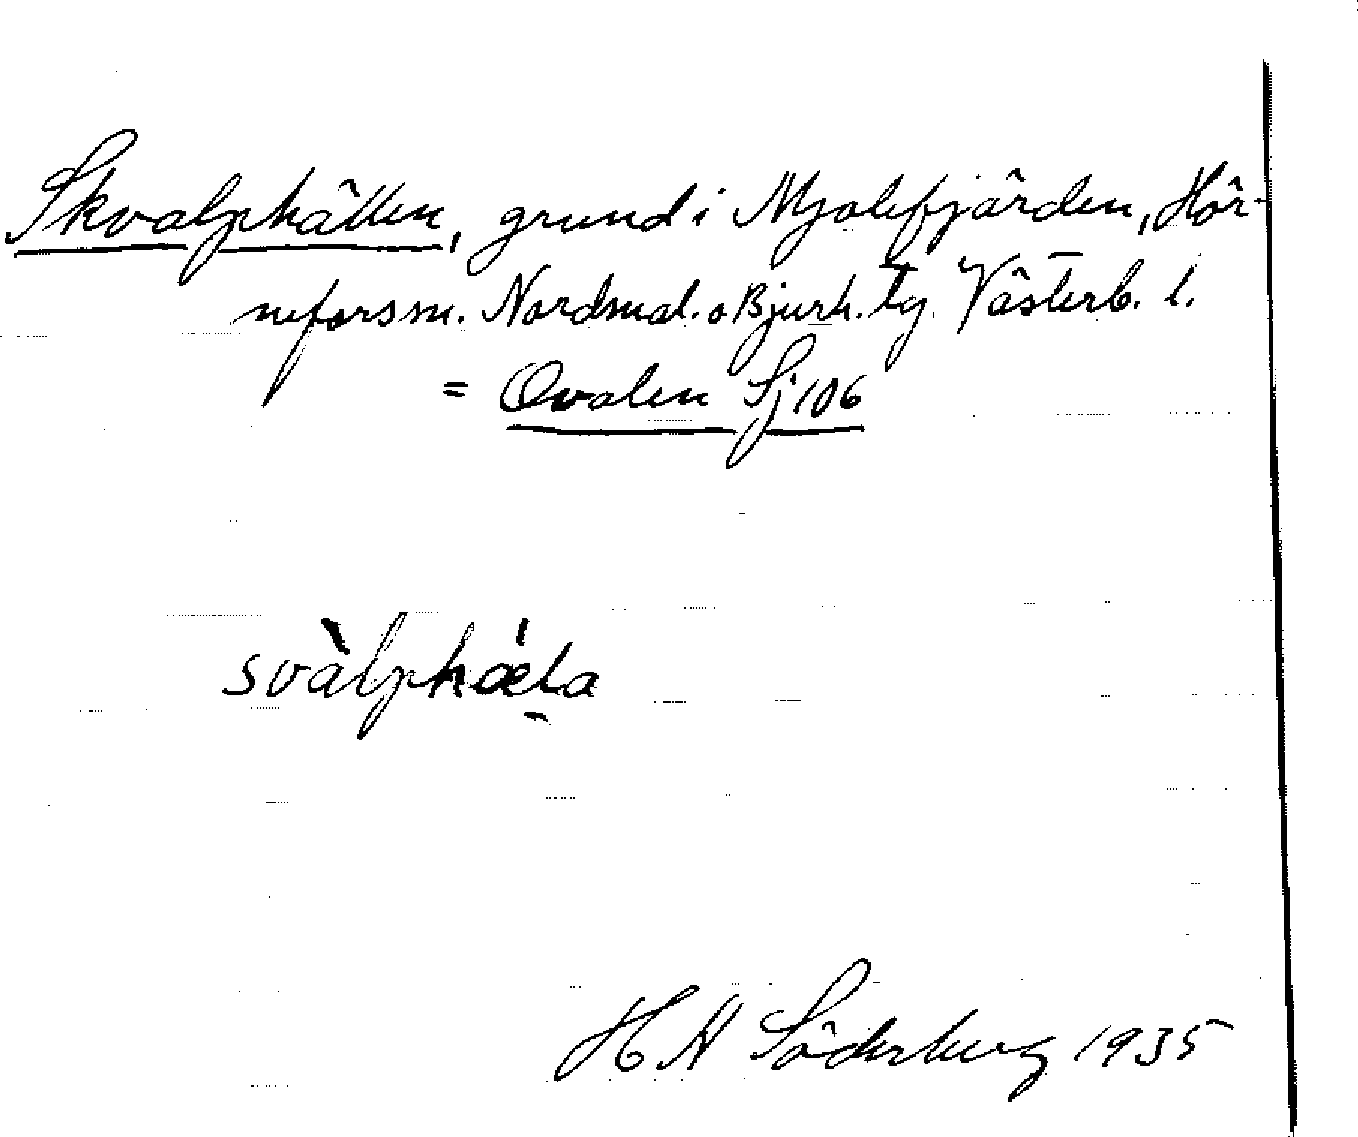 Skvalphällen, grund i Mjölefjärden, Hör-
neforsm. Nordmal. o Bjurh. tg. Västerb. l.
= Ovalen Sj 106
svàlphǽla
H N Söderberg 1935